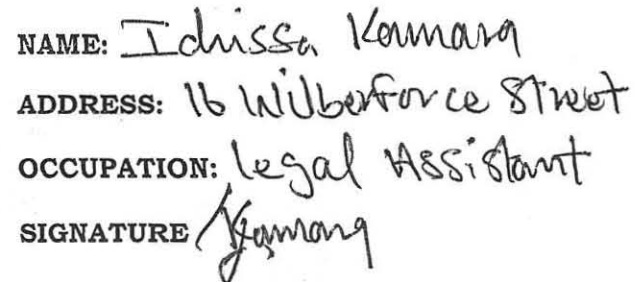 NAME: Idrissa Kamara
ADDRESS: 16 Wilberforce Street
OCCUPATION: Legal Assistant
SIGNATURE Kamara